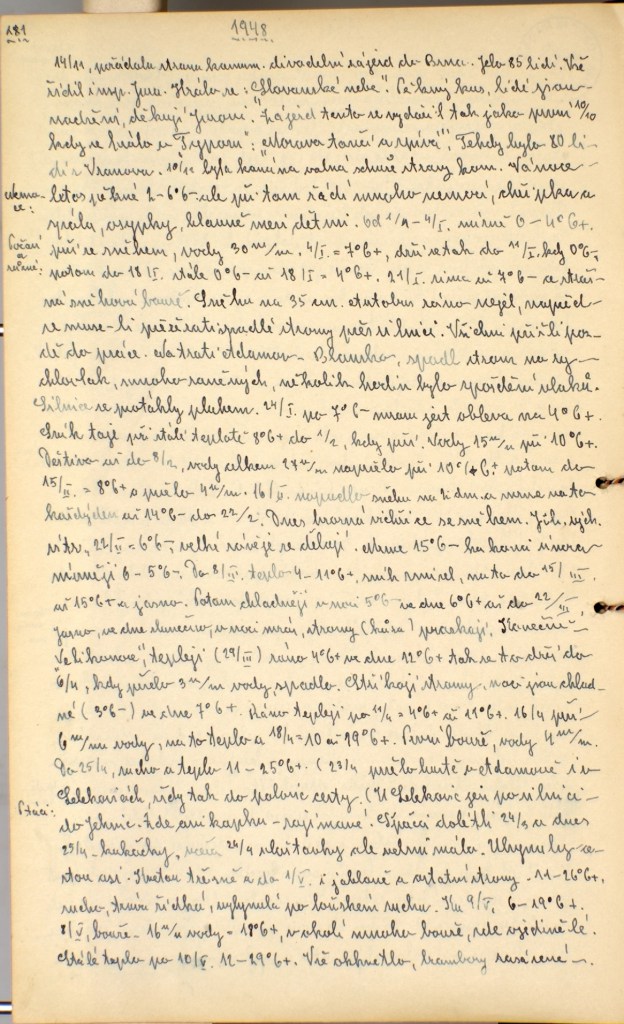 181
1948
14/11, pořádala strana komun. divadelní zájezd do Brna. Jelo 85 lidí. Vše
řídil insp. Jura. Hrálo se: „Slovanské nebe“. Pěkný kus, lidé jsou
nadšeni, děkují Jurovi. Zájezd tento se vydařil tak jako první 10/10
kdy se hrálo u „Typosu“: „Morava tančí a zpívá“, Tehdy bylo 80 li-
dí z Vranova. 10/12 byla konána valná schůze strany kom. Vánoce
Nemo-
ce:
letos pěkné 2-6°6- ale při tom řádí mnoho nemocí, chřipka a
spála, osypky, hlavně mezi dětmi. Od 1/1 - 4/I. mírně 0 - 4°6+.
Počasí
a
různé:
prší se sněhem, vody 30 m/m. 4/I. = 7°6+, drží se tak do 11/I. kdy 0°6-,
potom do 18/I. stále 0°6- až 18/I = 4°6+. 21/I. zima až 7°6- a straš-
ná sněhová bouře. Sněhu na 35 cm. Autobus ráno nejel, napřed
se muse-li přeřezati spadlé stromy přes silnici. Všichni přišli poz-
dě do práce. Na trati Adamov - Blansko, spadl strom na ry-
chlovlak, mnoho raněných, několik hodin bylo zpoždění vlaků.
Silnice se protáhly pluhem. 24/I. po 7°6- mraz jest obleva na 4°6+.
Sníh taje při stálé teplotě 8°6+ do 1/2, kdy prší. Vody 15 m/m při 10°6+.
Deštivo až do 8/2, vody celkem 27 m/m napršelo při 10°6+ potom do
15/II. = 8°6+ a pršelo 4 m/m. 16/II. napadlo sněhu na 21 cm. a mrzne na to
každý den až 14°6- do 22/2. Dnes hrozná vichřice se sněhem. Jih. vých.
vítr, 22/II = 6°6-, velké závěje se dělají. Mrzne 15°6- ku konci února
mírněji 6 - 5°6-. Do 8/III. teplo 4 - 11°6+, sníh zmizel, na to do 15/III.
až 15°6+ a jasno. Potom chladněji v noci 5°6- ve dne 6°6+ až do 22/III,
Jasno, ve dne slunečno, v noci mráz, stromy (kůra) praskají. Konečně
„Velikonoce“, tepleji (29/III) ráno 4°6+ ve dne 12°6+ tak se to drží do
6/4, kdy pršelo 3 m/m vody spadlo. Stříkají stromy, noci jsou chlad-
né (3°6-) ve dne 7°6+. Ráno tepleji po 11/4 = 4°6+ až 11°6+. 16/4 prší
6 m/m vody, na to teplo a 18/4 = 10 až 19°6+. První bouře, vody 4 m/m.
Do 25/4, sucho a teplo 11 - 25°6+. (23/4 pršelo hustě v Adamově i v
Ptáci:
Lelekovicích, vždy tak do polovic cesty. (U Lelekovic jen po silnici
do Jehnic. Zde ani kapku - zajímavé. Špačci dolétli 24/3 a dnes
25/4 - kukačky, 24/4 vlaštovky ale velmi málo. Uhynuly ce-
stou asi. Kvetou třešně a do 1/V. i jabloně a ostatní stromy. - 11-26°6+,
sucho, tráva řídká, vyhynulá po loňském suchu. Ku 9/V, 6 - 19°6+.
8/V, bouře - 16 m/m vody = 18°6+, v okolí mnoho bouře, zde ojediněle.
Stálé teplo po 10/V. 12-29°6+. Vše okvetlo, brambory zasázené -.